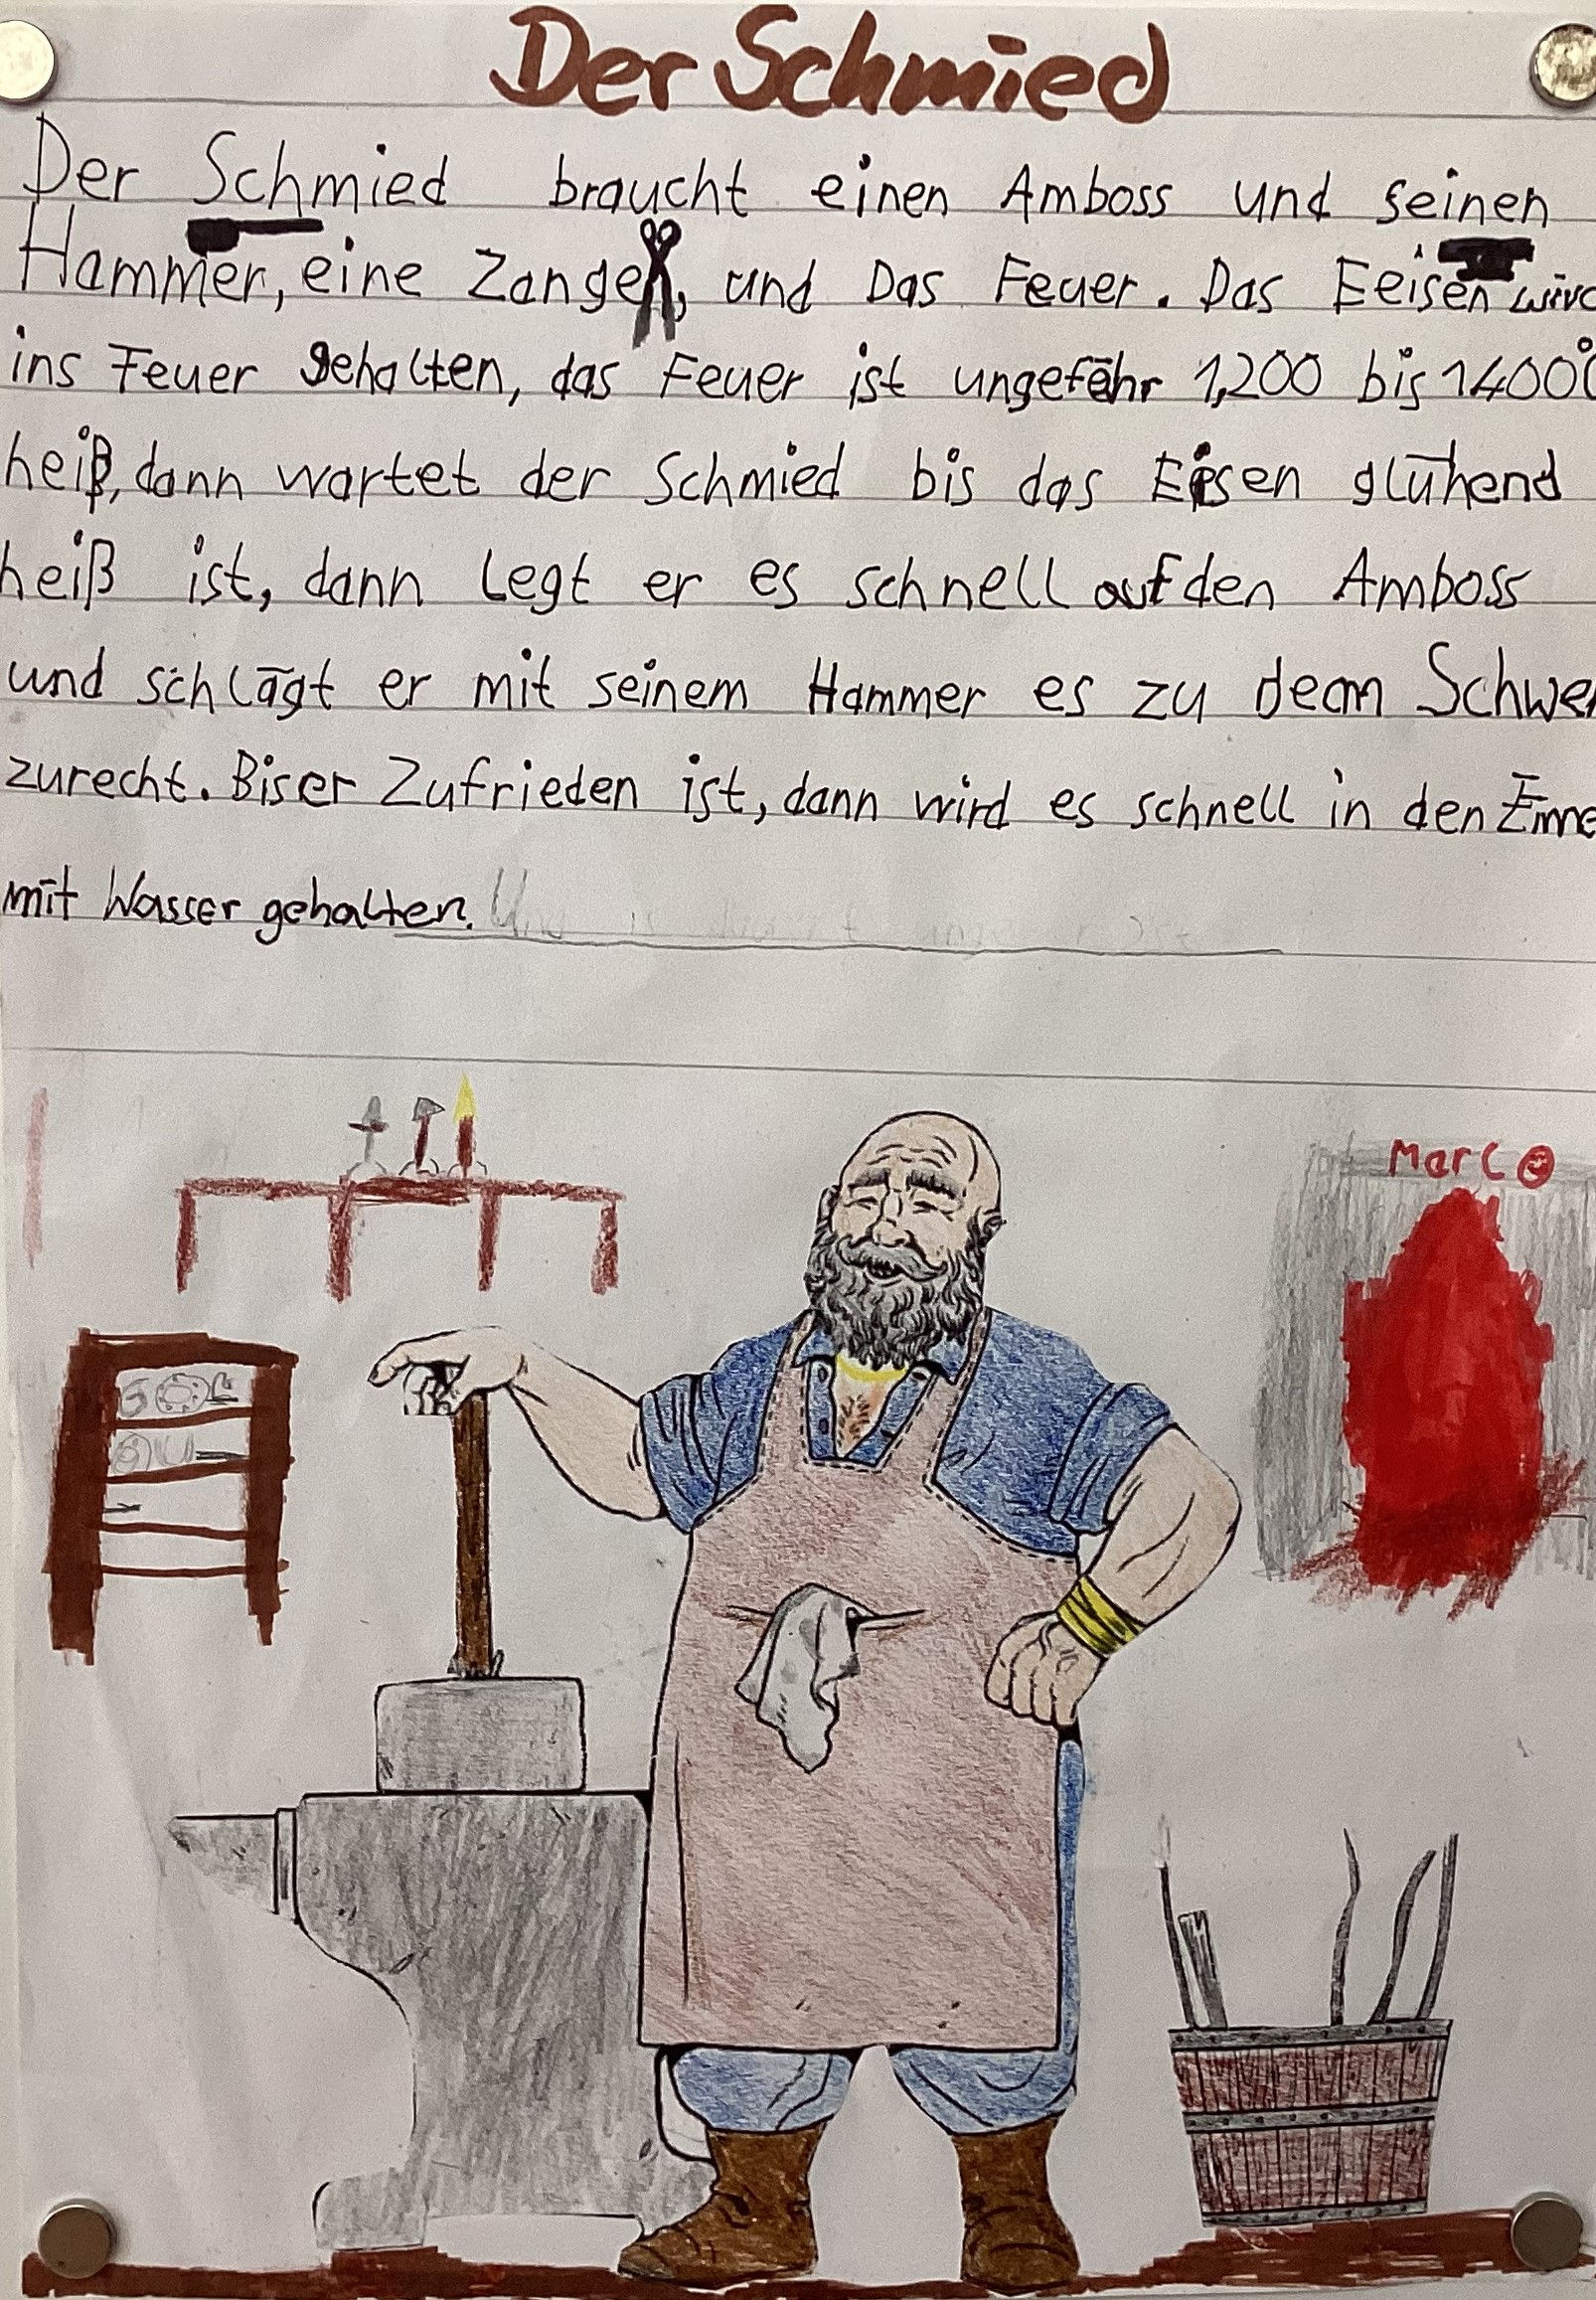 Der Schmied
Der Schmied braucht einen Amboss und seinen
Hammer, eine Zange, und Das Feuer. Das Eeisen wird
ins Feuer gehalten, das Feuer ist ungefähr 1,200 bis 1400°C
heiß, dann wartet der Schmied bis das Eisen glühend
heiß ist, dann legt er es schnell auf den Amboss
und schlägt er mit seinem Hammer es zu dem
zurecht. Bis er Zufrieden ist, dann wird es schnell in den
mit Wasser gehalten.
Marco